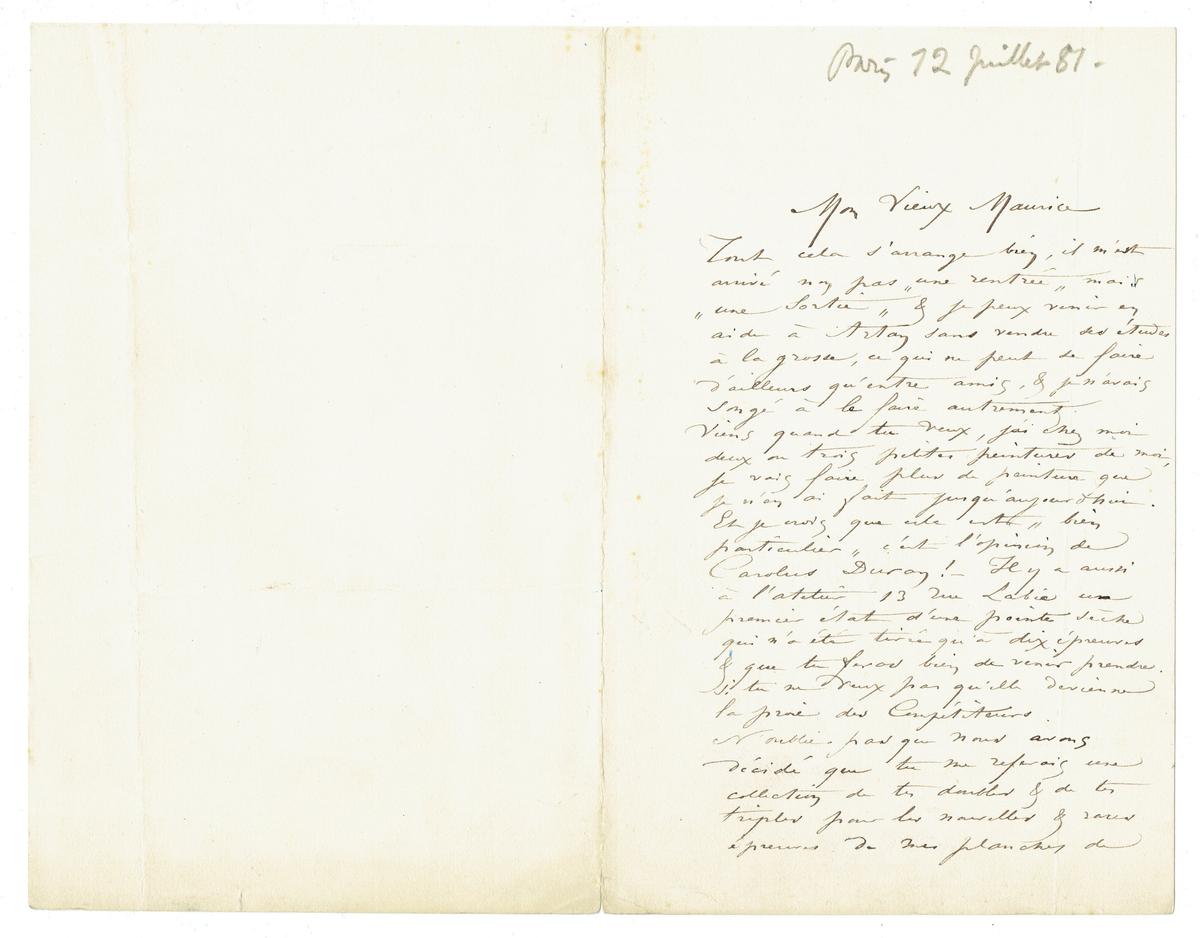 Paris 12 Juillet 81.
Mon Vieux Maurice
Tout cela s'arrange bien, il m'est
arrivé non pas „une rentrée„ mais
„une Sortie„ & je peux venir en
aide à Artan sans vendre ses études
à la grosse, ce qui ne peut se faire
d'ailleurs qu'entre amis, & je n'avais
songé à le faire autrement.
Viens quand tu veux, j'ai chez moi
deux ou trois petites peintures de moi,
je vais faire plus de peinture que
je n'en ai fait jusqu'aujourd'hui.
Et je crois que cela est „bien
particulier„ c'est l'opinion de
Carolus Duran! – Il y a aussi
à l'atelier 13 rue Labie un
premier état d'une pointe sèche
qui n'a été tirée qu'à dix épreuves
& que tu feras bien de venir prendre.
si tu ne veux pas qu'elle devienne
la proie des Compétiteurs.
N'oublie pas que nous avons
décidé que tu me referais une
collection de tes doubles & de tes
triples pour les nouvelles & rares
épreuves de mes planches de